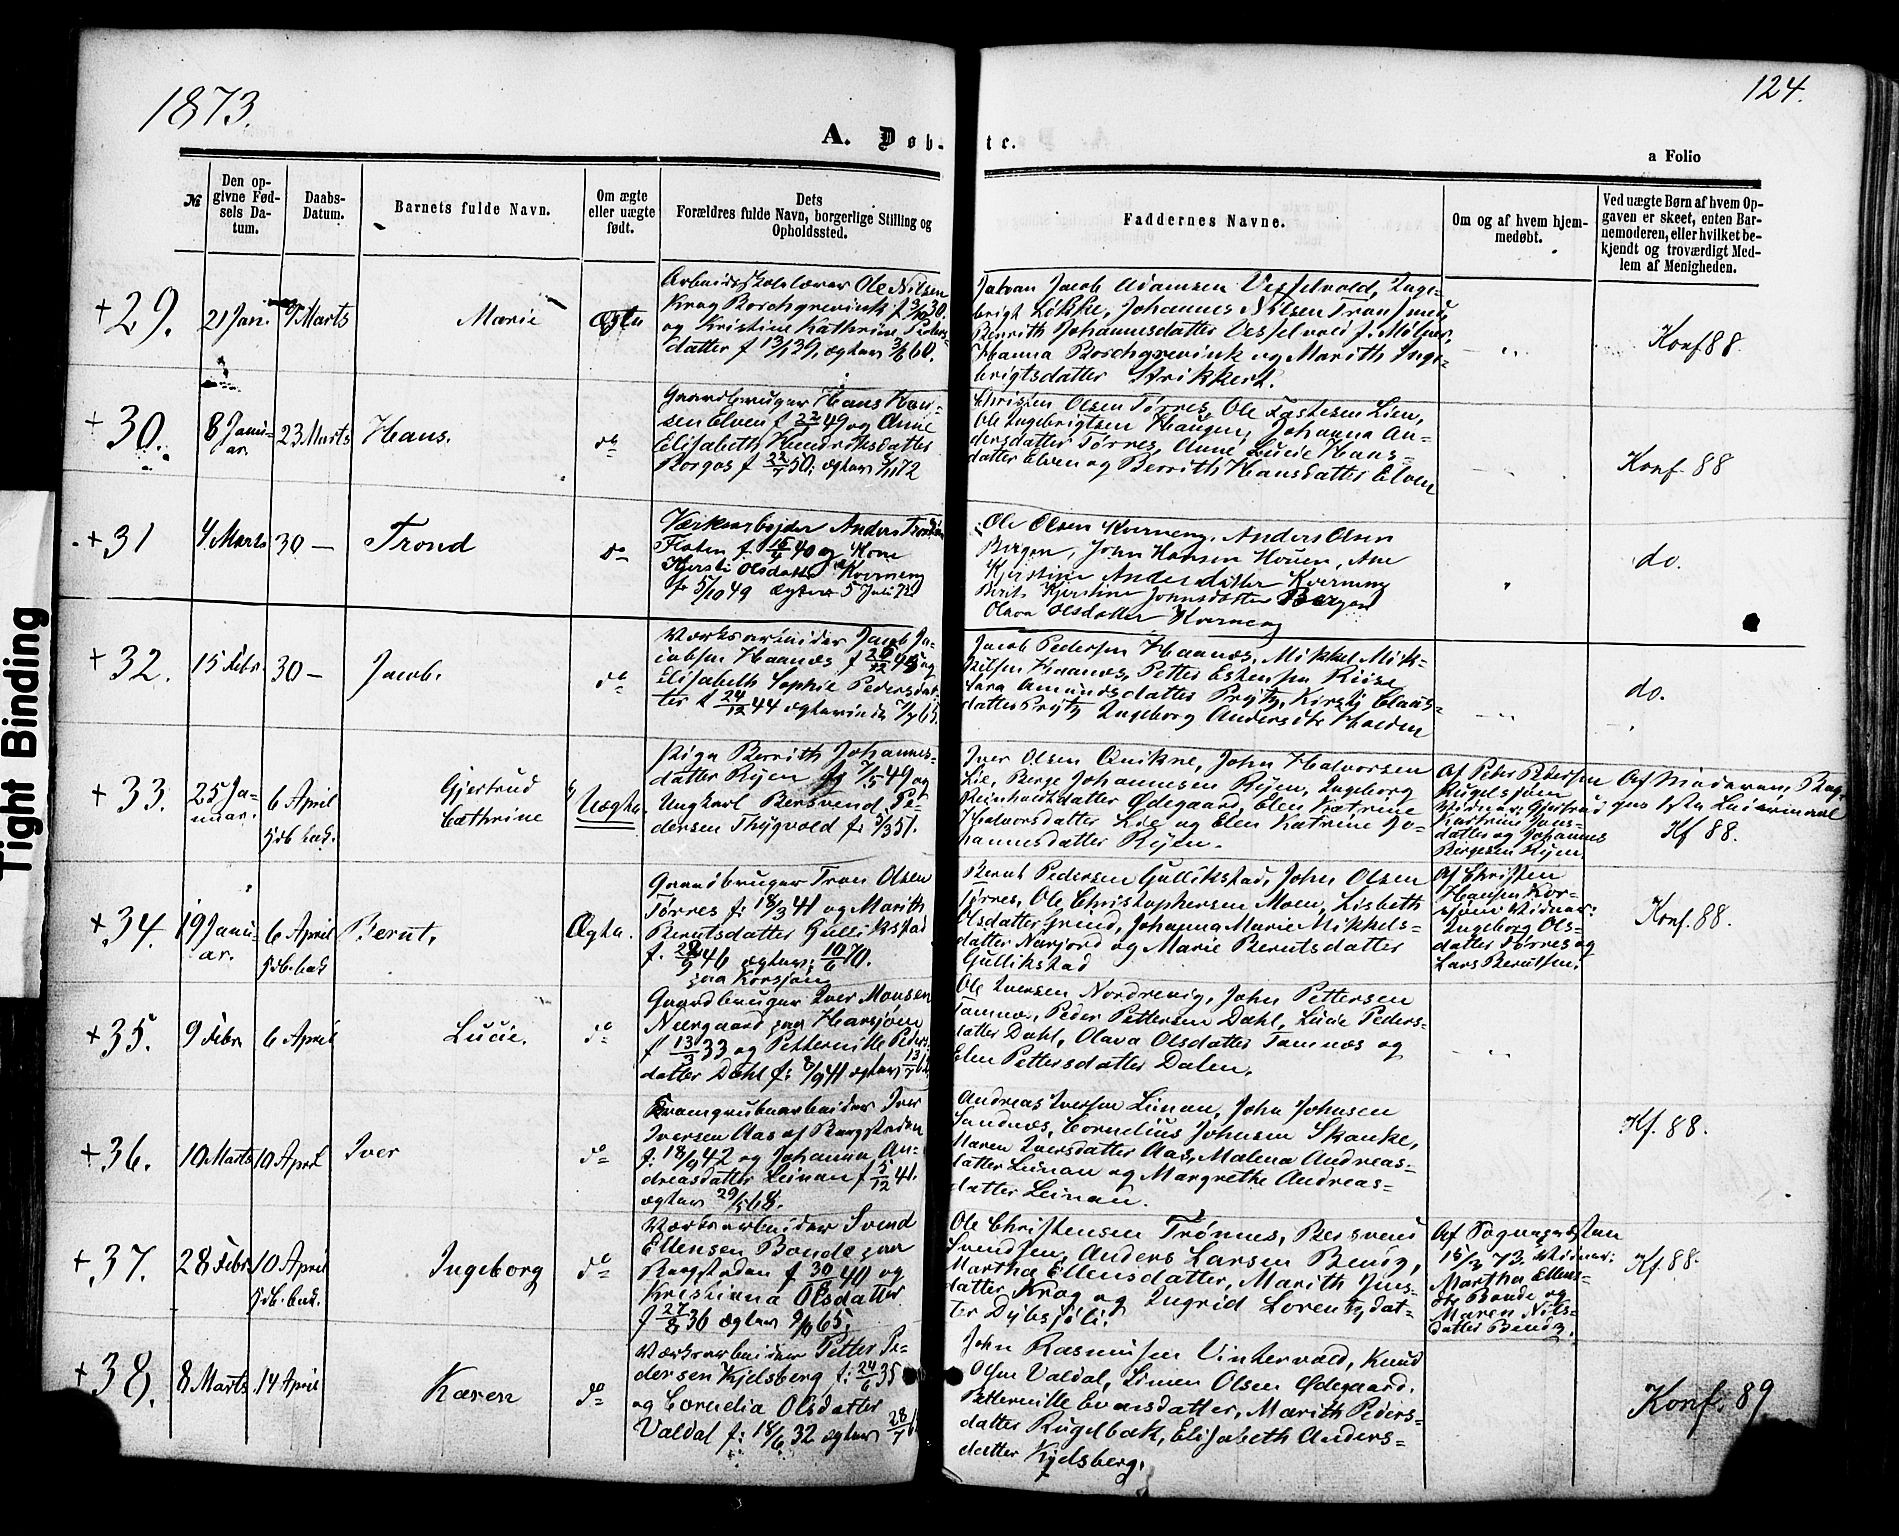 1873.
124.
A. Døb- te.
a Folio
№
Den opgivne Fødsels Datum.
Daabs-Datum.
Barnets fulde Navn.
Om ægte eller uægte født.
Dets Forældres fulde Navn, borgerlige Stilling og Opholdssted.
Faddernes Navne.
Om og af hvem hjemmedøbt.
Ved uægte Børn af hvem Opgaven er skeet, enten Barnemoderen, eller hvilket bekjendt og troværdigt Medlem af Menigheden.
Tight Binding
+ 29.
21 Jan.
9 Marts
Marie
Ægte
Ole Nilsen
Krag Borchgrevink f.
og Kristine Kathrine Peders-
datter f 13/1 39, ægtev 3/6 60.
Jacob Adamsen Vesselvold, Inge-
brigt Løkke, Johannes Nilsen
Berrith Johannesdatter Vesselvold f. Møller,
Hanna Borchgrevink og Marith Inge-
brigtsdatter Strikkert.
Konf 88.
+ 30.
8 Janu-
ar.
23 Marts
Hans.
do
Gaardbruger Hans
sen Elven f 49 og Anne
Elisabeth Hendriksdatter
Borgos f 50. ægtev 72
Olsen Tørres, Ole Lien,
Ole Ingebrigtsen Haugen, Johanna An-
dersdatter Tørres, Anne Lucie Hans-
datter Elven og Berrith Hansdatter Elven
Konf. 88
+ 31
4 Marts
30 —
Trond
do
Værksarbejder Anders
Floten f. 40 og Kone
Kjersti Olsdatter Kverneng
f. 5/10 49 ægtev 5 Juli 72
Ole Olsen Kverneng, Anders Olsen
Bergen, John Hansen Houen, Ane
Kjerstine Andersdatter Kverneng
Berit Kjerstine Johnsdatter Bergen
Olava Olsdatter Kverneng
do.
+ 32.
15 Febr
30 —
Jacob.
do
Værksarbeider Jacob Ja-
cobsen Haanæs f 26/12 45 og
Elisabeth Sophie Pedersdat-
ter f 24/12 44
Jacob Pedersen Haanæs, Mikkel Mik-
kelsen Haanæs, Petter Eskensen Riise
Sara Amundsdatter Prytz, Kirsti Claus-
datter Prytz Ingeborg Andersdtr Holden
do.
+ 33.
25 Ja-
nuar.
6 April
Gjertrud
Cathrine
Uægte.
Pige Berrith Johannes-
datter Ryen 49 og
Ungkarl Bersvend Pe-
dersen Thygvold f: 5/3 51.
Iver Olsen Qvikne, John Halvorsen
Lie, Berge Johannesen Ryen, Ingeborg
Reinholdtsdatter Ødegaard, Elen Katrine
Halvorsdatter Lie og Elen Katrine Jo-
hannesdatter Ryen.
Af Peter Pedersen
Rugelsjøen
Vidner: Gjertrud
Kathrine Jons-
datter og Johannes
Bergesen Ryen.
Af Moderen,
Kf 88.
+ 34.
19 Janu-
ar.
6 April
Bernt.
Ægte.
Gaardbruger Tron Olsen
Tørres f: 18/3 41 og Marith
Berntsdatter Gullikstad
f. 46 ægtev: 10/6 70.
paa Korsjøen
Bernt Pedersen Gullikstad, John Olsen
Tørres, Ole Christophersen Moen, Lisbeth
Olsdatter Grind, Johanna Marie Mikkels-
datter Narjord og Marie Berntsdatter
Gullikstad
Af Christen
Hansen Kor-
sjøen Vidner:
Ingeborg Ols-
datter Tørres og
Lars Berntsen.
Konf. 88.
+ 35.
9 Febr
6 April
Lucie.
do
Gaardbruger Iver Monsen
Neergaard paa Harsjøen
f 13/3 33 og Petternille Peders-
datter Dahl f: 8/9 41 ægtev
Ole Iversen Nordrevig, John Pettersen
Tamnæs, Peder Pettersen Dahl, Lucie Peders-
datter Dahl, Olava Olsdatter Tamnæs og
Elen Pettersdatter Dalen.
+ 36.
10 Marts
10 April
Iver
do
Iver
Iversen Aas af Bergstaden
f: 18/9 42 og Johanna An-
dreasdatter Leinan f 5/12 41.
ægtev 29/5 68.
Andreas Iversen Leinan, John Johnsen
Sandnæs, Cornelius Johnsen Skanke,
Maren Iversdatter Aas, Malena Andreas-
datter Leinan og Margrethe Andreas-
datter Leinan.
Kf. 88.
+ 37.
28 Febr
10 April
Ingeborg
do
Værksarbeider Svend
Ellensen Bonde paa
Bergstaden f 40 og
Kristiana Olsdatter
f 36 ægtev 65.
Ole Christensen Trønnes, Bersvend
Svendsen, Anders Larsen Bendz,
Martha Ellensdatter, Marith Jens-
datter Krag og Ingrid Lorentzdat-
ter Dybsjøli.
Af Sognepræsten
15/3 73. Vidner:
Martha Ellens-
dtr Bonde og
Maren Nils-
datter Bendz.
Kf. 88.
+ 38.
8 Marts
14 April
Karen
do
Værksarbeider Petter Pe-
dersen Kjelsberg f: 24/6 35
og Cornelia Olsdatter
Valdal f: 18/6 32 ægtev 28/7
John Rasmusen Vintervold, Knud
Olsen Valdal, Simen Olsen Ødegaard.
Petternille Evensdatter, Marith Peders-
datter Rugelbæk, Elisabeth Anders-
datter Kjelsberg.
Konf. 89